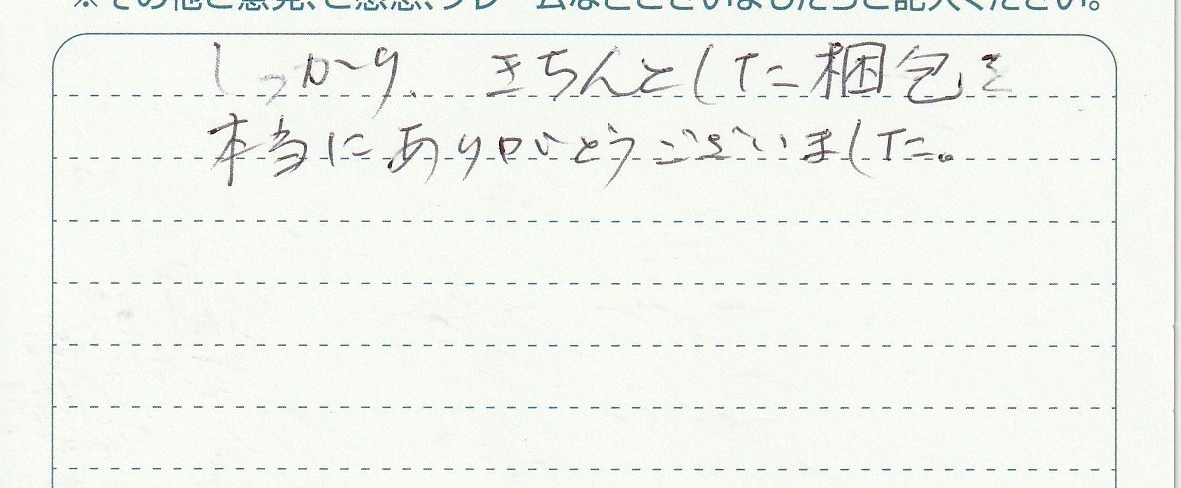 ※その他ご意見、ご感想、クレームなどございましたらご記入ください。
しっかり、きちんとした梱包を
本当にありがとうございました。